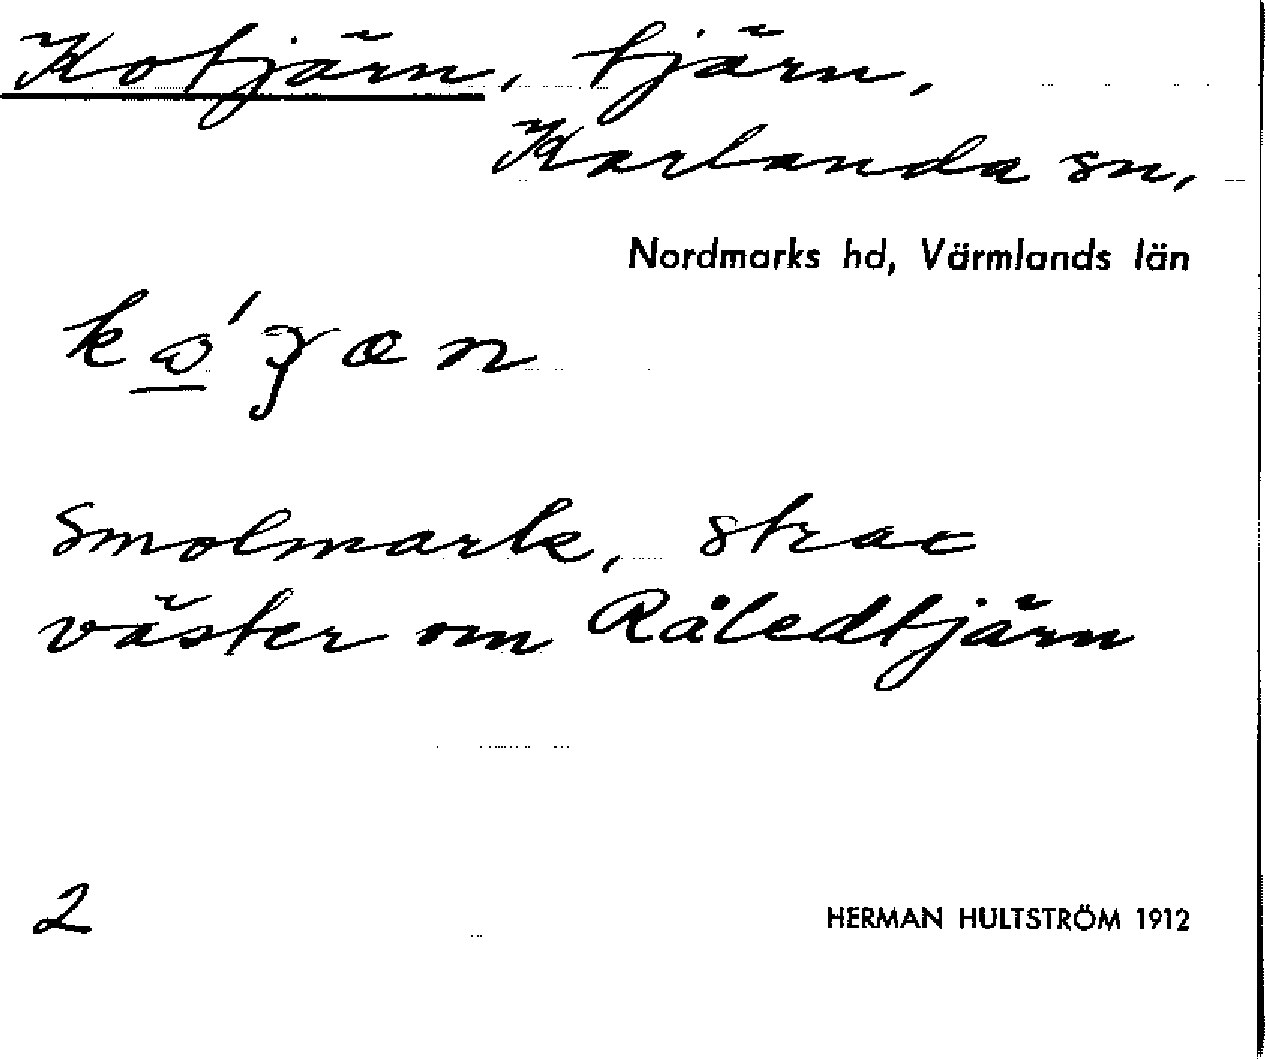 Kotjärn, tjärn,
Karlanda sn,
Nordmarks hd, Värmlands län
Smolmark, strax
väster om Råledtjärn
2
HERMAN HULTSTRÖM 1912